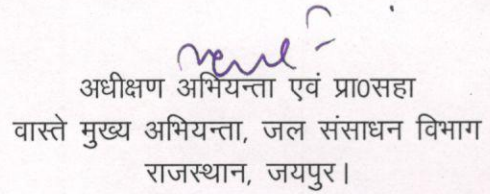 अधीक्षण अभियन्ता एवं प्रा0सहा
वास्ते मुख्य अभियन्ता, जल संसाधन विभाग
राजस्थान, जयपुर।